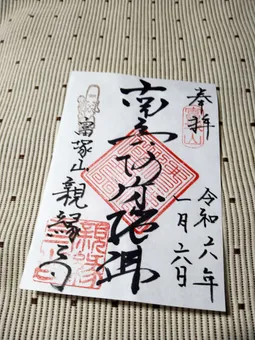 奉拝
令和六年
一月六日
南無阿弥陀仏
富塚山 親縁寺
親縁